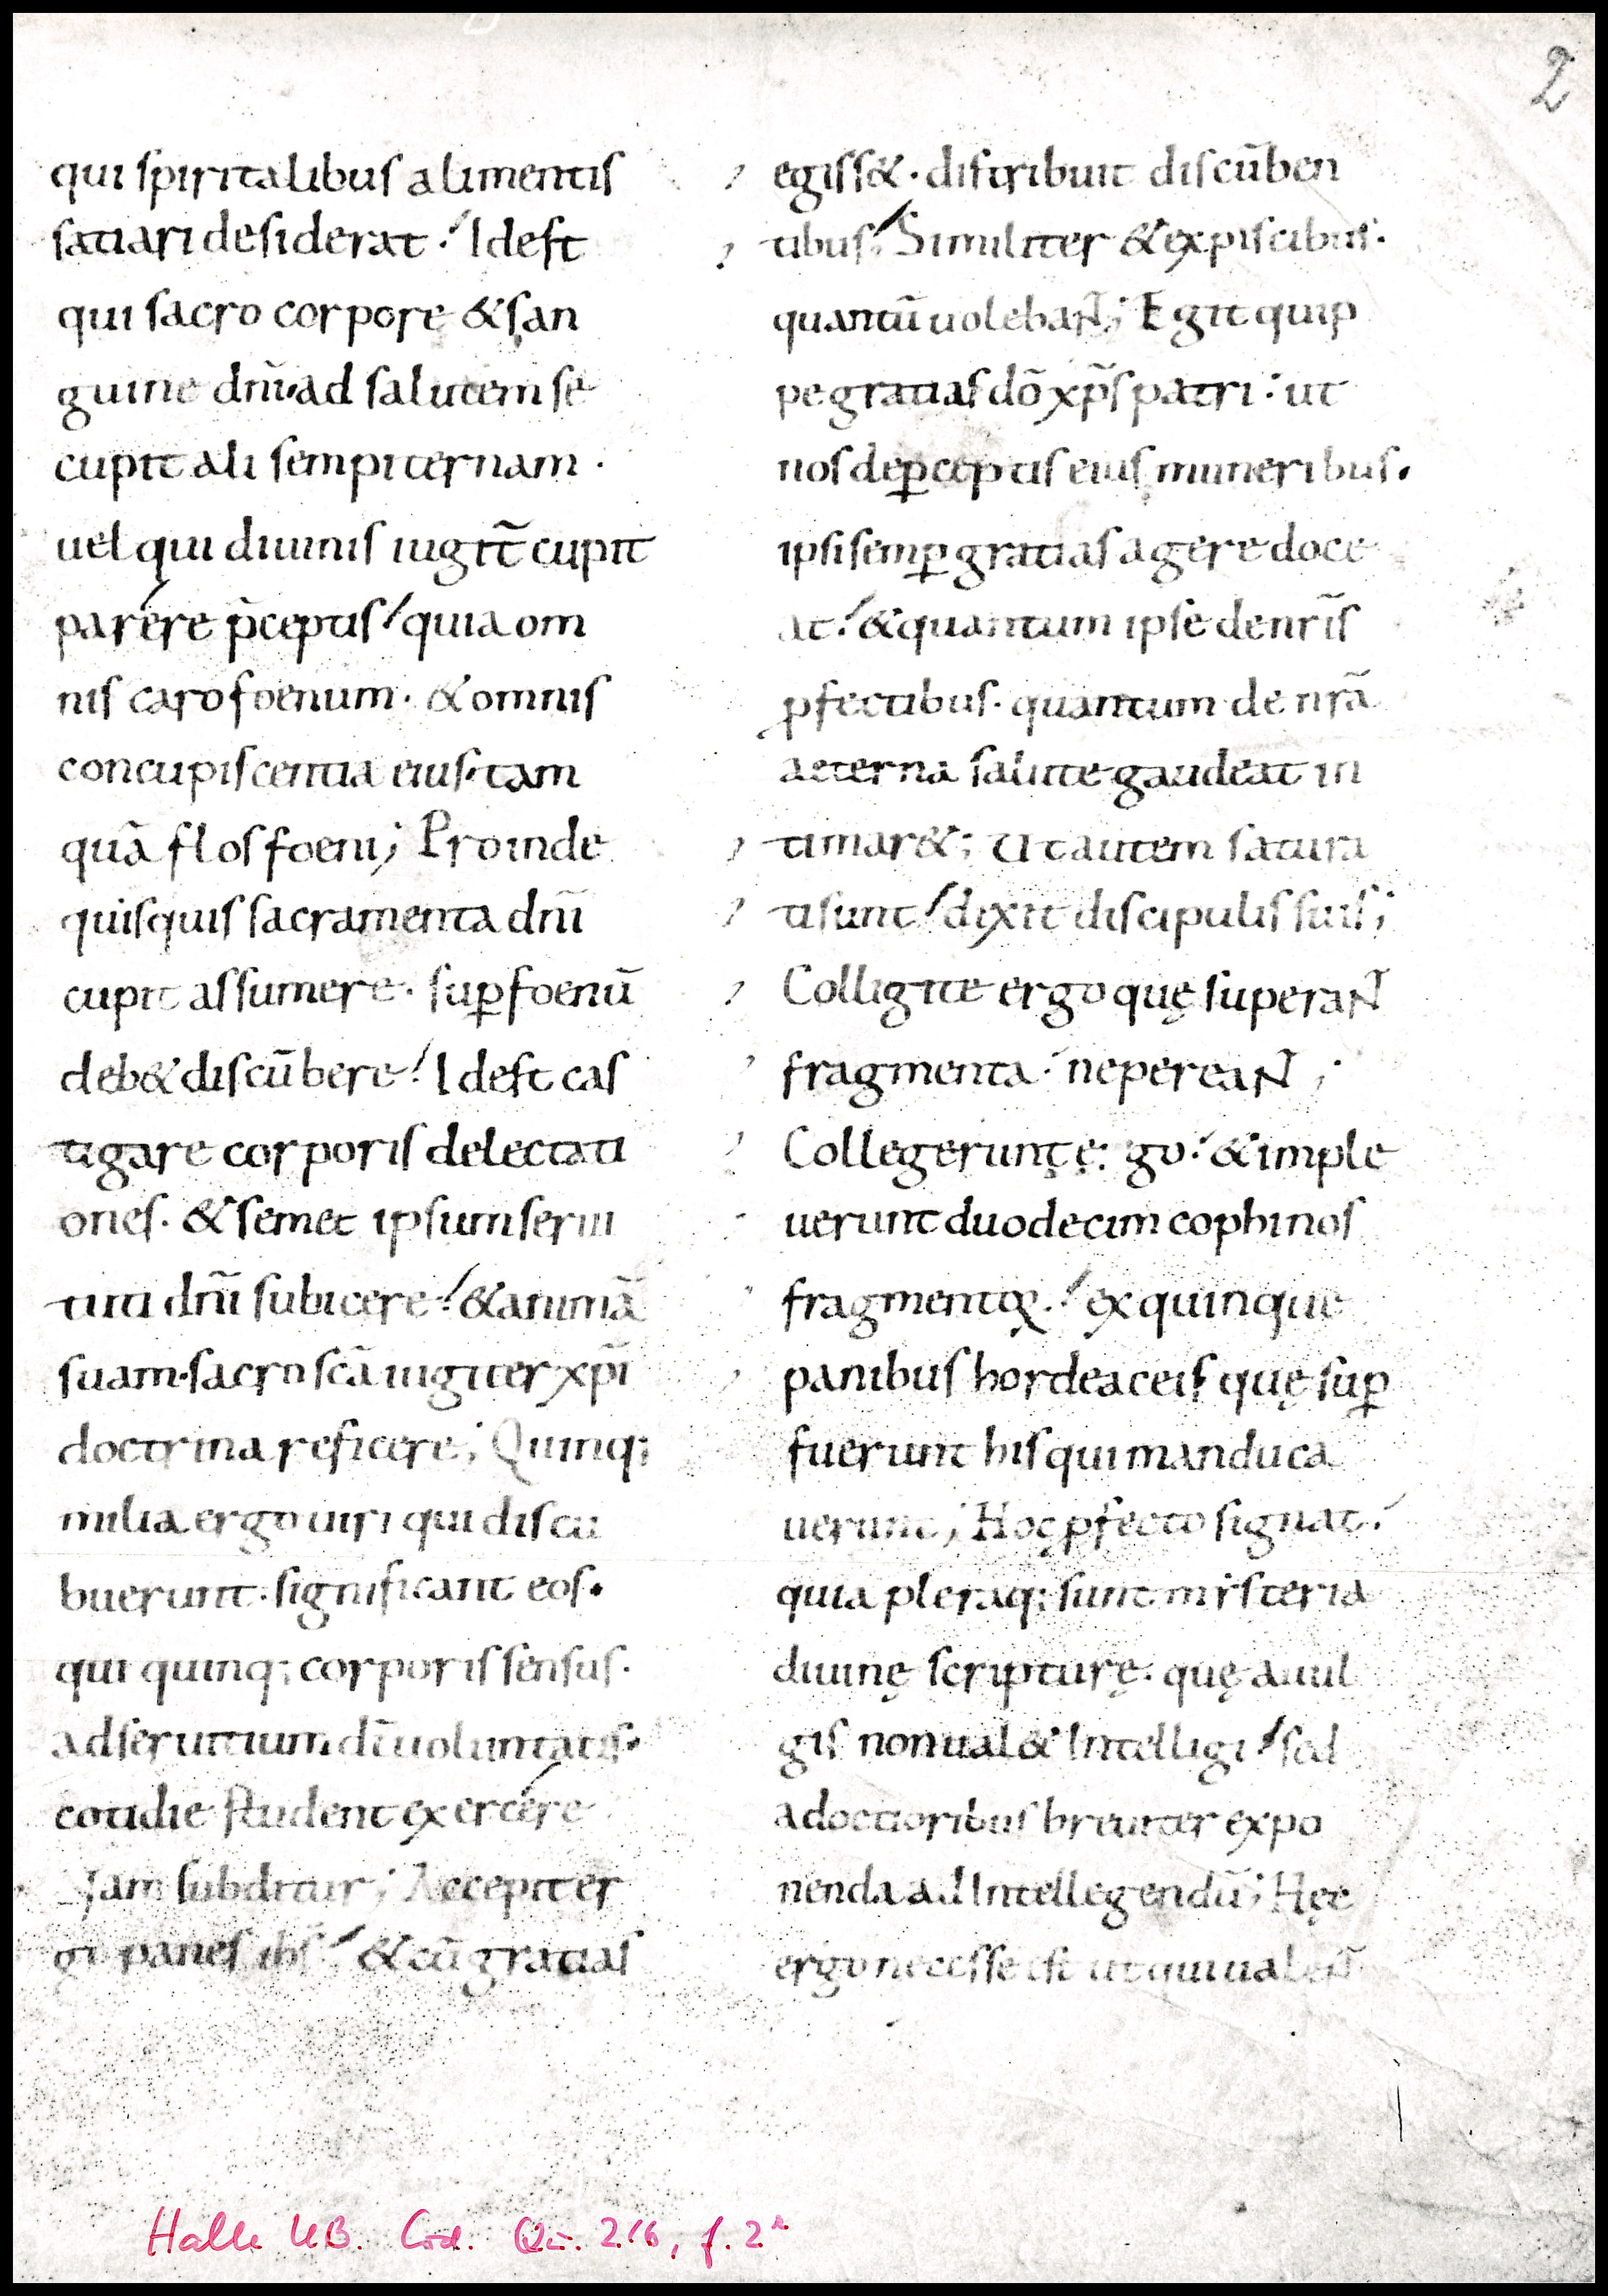 2
qui spiritalibus alimentis
satiari desiderat. Idest
qui sacro corpore & san
guine dñi ad salutem se
cupit ali sempiternam.
uel qui diuinis iugit̃ cupit
parére p̄ceptis. quia om
nis caro foenum. & omnis
concupiscentia eius. tam
quā flos foeni; Proinde
quisquis sacramenta dñi
cupit assumere. suꝑ foenū
deb& discūbere. Idest cas
tigare corporis delectati
ones. & semet ipsum serui
tuti dñi subicere. & animā
suam. sacrosc̄a iugiter xp̄i
doctrina reficere; Quinq;
milia ergo uiri qui discu
buerunt. significant eos.
qui quinq; corporis sensus.
ad seruitium dī uoluntatis.
cotidie student exercére
Iam subditur; Accepit er
go panes ih̄s. & cū gratias
egiss&. distribuit discūben
tibus. Similiter & ex piscibus.
quantū uolebaN̄; Egit quip
pe gratias dō xp̄s patri. ut
nos de ꝑceptis eius muneribus.
ipsi semꝑ gratias agere doce
at. & quantum ipse de nr̄is
ꝓfectibus. quantum de nrā
aeterna salute gaudeat in
timar&; Ut autem satura
ti sunt. dixit discipulis suis;
Colligite ergo quę superaN̄
fragmenta. ne pereaN̄;
Collegerunt ergo. & imple
uerunt duodecim cophinos
fragmentoꝝ. ex quinque
panibus hordeaceis quę suꝑ
fuerunt his qui manduca
uerunt; Hoc ꝓfecto signat.
quia pleraq; sunt misteria
diuinę scripturę. quę a uul
gis non ual& Intelligi. sed
a doctioribus breuiter expo
nenda ad Intellegendū; Hęc
ergo necesse est ut qui ualeN̄
Halle UB. Cod. Qu. 216, f. 2r